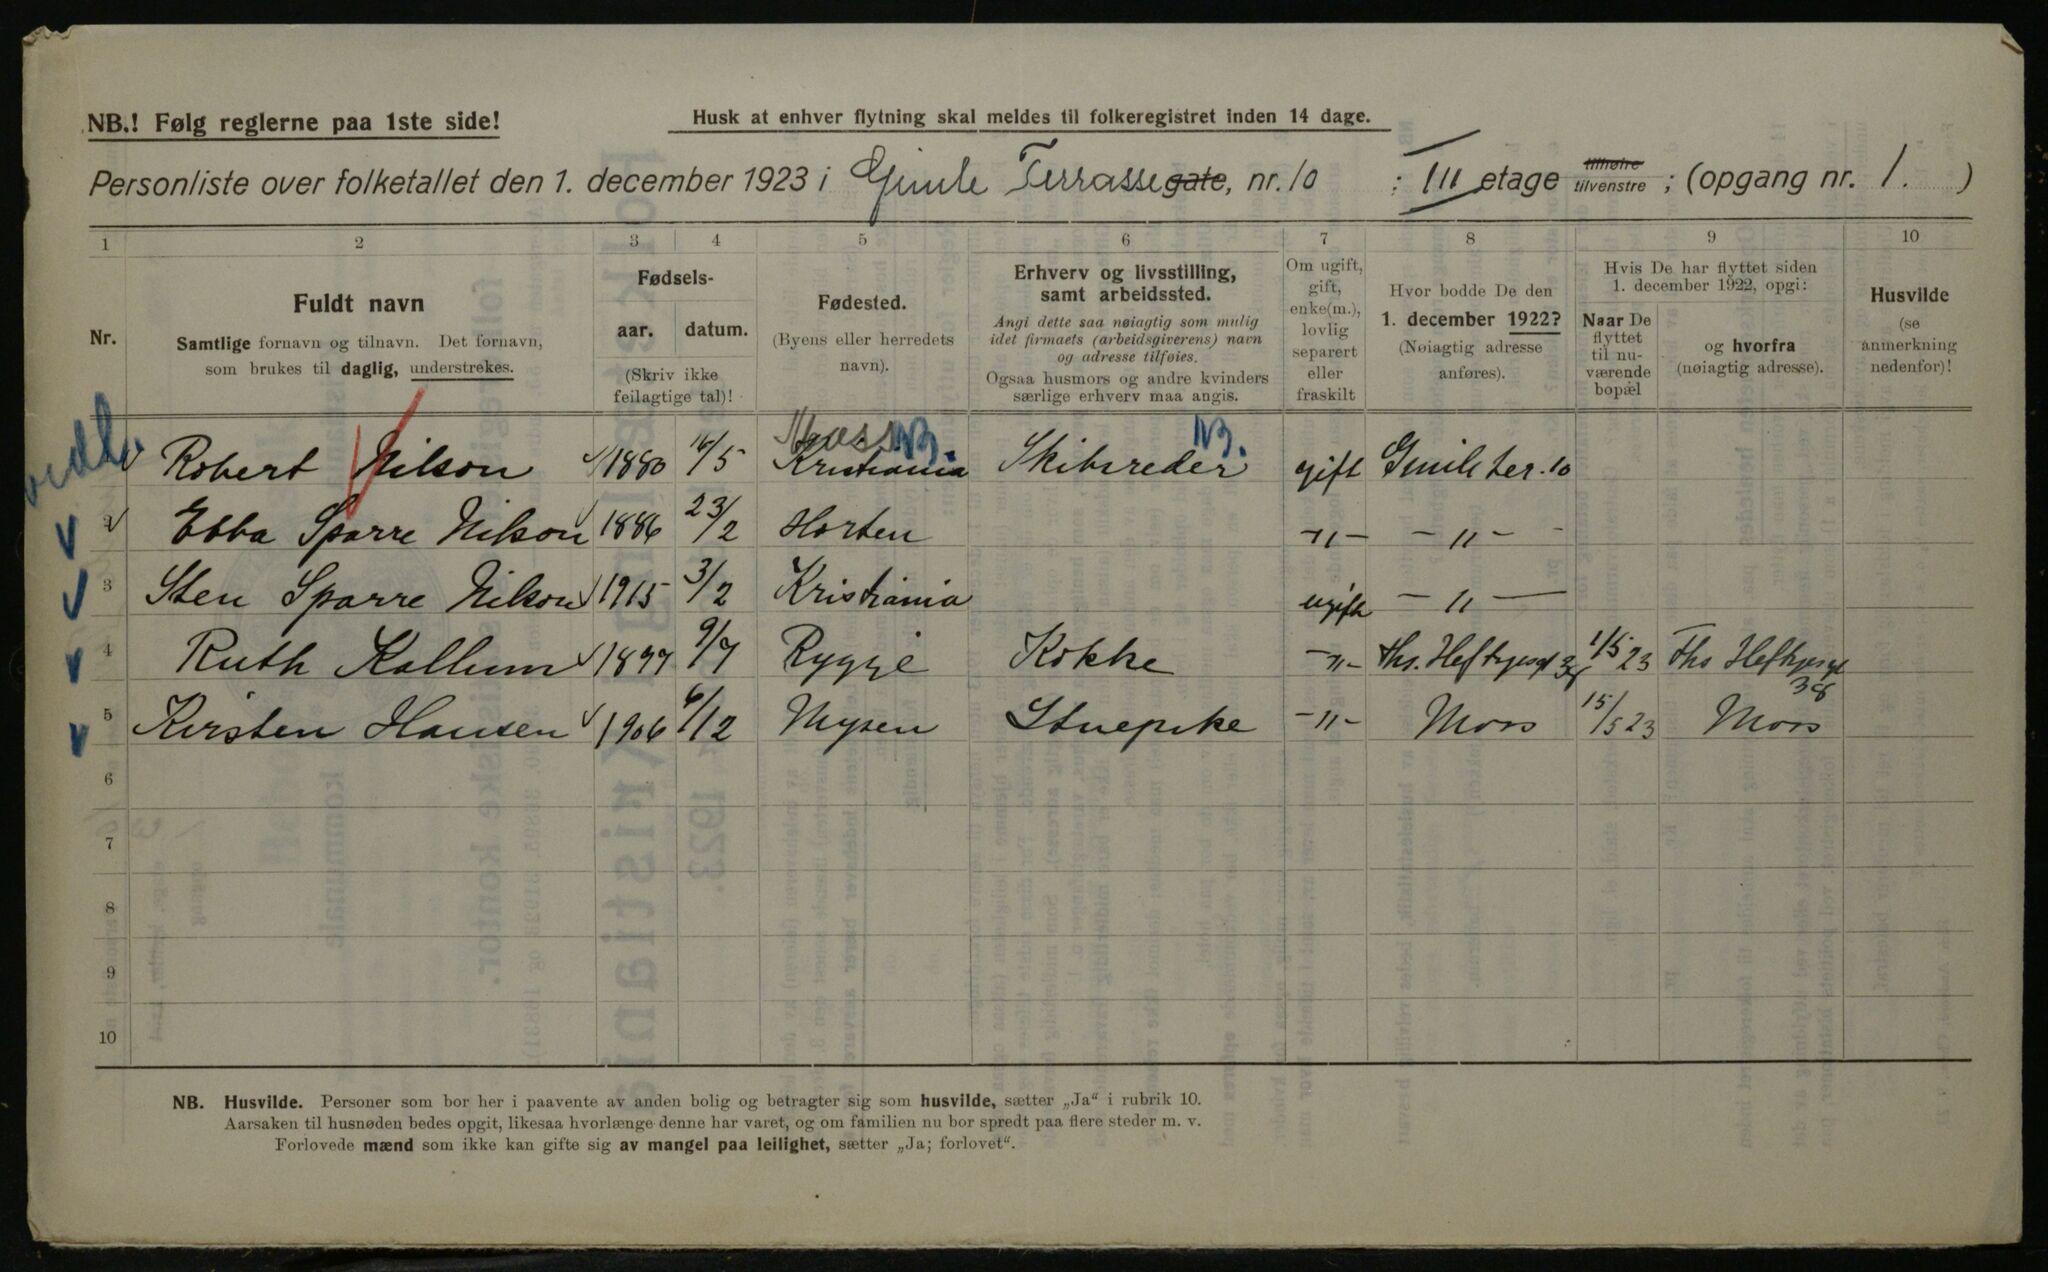 NB.! Følg reglerne paa 1ste side!
Husk at enhver flytning skal meldes til folkeregistret inden 14 dage.
Personliste over folketallet den 1. december 1923 i Gimle Terrasse gate, nr. 10 : III etage tilhøire tilvenstre ; (opgang nr. 1. )
1 2 3 4 5 6 7 8 9 10
Nr.
Fuldt navn
Samtlige fornavn og tilnavn. Det fornavn,
som brukes til daglig, understrekes.
Fødsels-
aar. datum.
(Skriv ikke
feilagtige tal)!
Fødested.
(Byens eller herredets
navn).
Erhverv og livsstilling,
samt arbeidssted.
Angi dette saa nøiagtig som mulig
idet firmaets (arbeidsgiverens) navn
og adresse tilføies.
Ogsaa husmors og andre kvinders
særlige erhverv maa angis.
Om ugift,
gift,
enke(m.),
lovlig
separert
eller
fraskilt
Hvor bodde De den
1. december 1922?
(Nøiagtig adresse
anføres).
Hvis De har flyttet siden
1. december 1922, opgi:
Naar De
flyttet
til nu-
værende
bopæl
og hvorfra
(nøiagtig adresse).
Husvilde
(se
anmerkning
nedenfor)!
Moss NB. NB.
Robert Nilson 1880 16/5 Kristiania Skibsreder gift Gimle ter. 10
2 Ebba Sparre Nilson 1886 23/2 Horten -"- -"-
3 Sten Sparre Nilson 1915 3/2 Kristiania ugift -"-
4 Ruth Kallum 1877 9/7 Rygge Kokke -"- Ths. Heftyesgt 38 1/5 23 Ths Heftyesgt 38
5 Kirsten Hansen 1906 6/12 Mysen Stuepike -"- Moss 15/5 23 Moss
6
7
8
9
10
NB. Husvilde. Personer som bor her i paavente av anden bolig og betragter sig som husvilde, sætter „Ja" i rubrik 10.
Aarsaken til husnøden bedes opgit, likesaa hvorlænge denne har varet, og om familien nu bor spredt paa flere steder m. v.
Forlovede mænd som ikke kan gifte sig av mangel paa leilighet, sætter „Ja; forlovet".